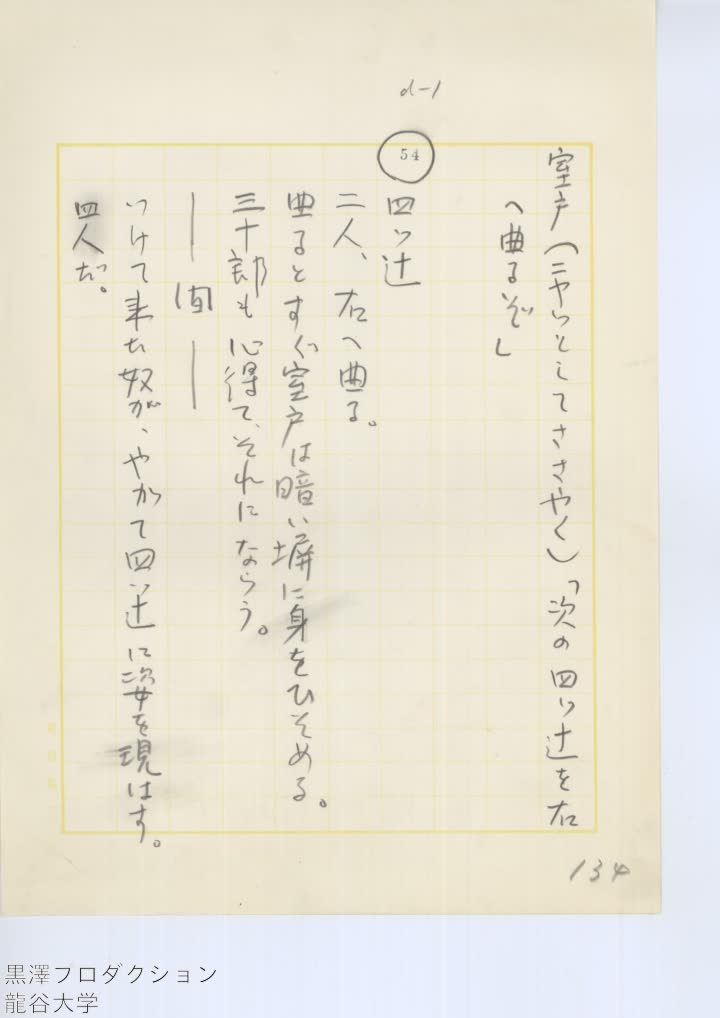 d-1
室戸(ニヤッとしてささやく)「次の四ツ辻を右
へ曲るぞ」
54
四ツ辻
二人、右へ曲る。
曲るとすぐ室戸は暗い塀に身をひそめる。
三十郎も心得て、それにならう。
——間——
つけて来た奴が、やがて四ツ辻に姿を現はす。
四人だ。
134
黒澤プロダクション
龍谷大学